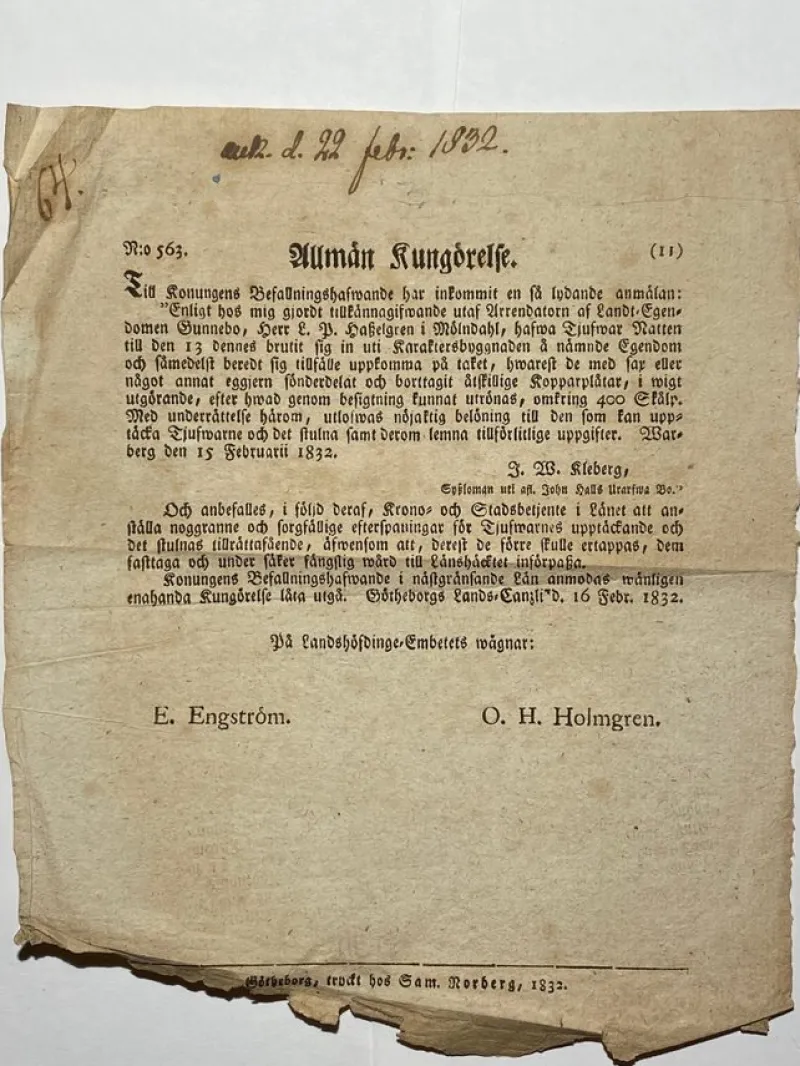 ank. d. 22 febr: 1832.
64.
N:o 563.
Allmän Kungörelse.
(11)
Till Konungens Befallningshafwande har inkommit en så lydande anmälan:
"Enligt hos mig gjordt tillkännagifwande utaf Arrendatorn af Landt-Egen-
domen Gunnebo, Herr L. P. Haßelgren i Mölndahl, hafwa Tjufwar Natten
till den 13 dennes brutit sig in uti Karaktersbyggnaden å nämnde Egendom
och såmedelst beredt sig tillfälle uppkomma på taket, hwarest de med sax eller
något annat eggjern sönderdelat och borttagit åtskillige Kopparplåtar, i wigt
utgörande, efter hwad genom besigtning kunnat utrönas, omkring 400 Skålp.
Med underrättelse härom, utlofwas nöjaktig belöning till den som kan upp-
täcka Tjufwarne och det stulna samt derom lemna tillförlitlige uppgifter. War-
berg den 15 Februarii 1832.
J. W. Kleberg,
Syßloman uti afl. John Halls Urarfwa Bo."
Och anbefalles, i följd deraf, Krono- och Stadsbetjente i Länet att an-
ställa noggranne och sorgfällige efterspaningar för Tjufwarnes upptäckande och
det stulnas tillrättafående, äfwensom att, derest de förre skulle ertappas, dem
fasttaga och under säker fångstig wård till Länshäcktet införpaßa.
Konungens Befallningshafwande i nästgränsande Län anmodas wänligen
enahanda Kungörelse låta utgå. Götheborgs Lands-Canzli d. 16 Febr. 1832.
På Landshöfdinge-Embetets wägnar:
E. Engström.
O. H. Holmgren.
Götheborg, tryckt hos Sam. Norberg, 1832.